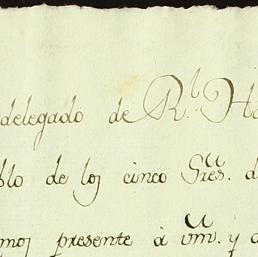 delegado de Rl. Ha
blo de los cinco Sres. d
mos presente á Vm. y a